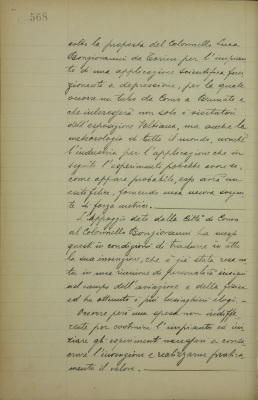 568
la proposta del Colonnello Luca
Bongiovanni da Torino per l'impian-
to di una applicazione scientifica fun-
zionante a depressione, per la quale
occorre un tubo da Como a Brunate e
che interesserà non solo i visitatori
dell'esposizione Voltiana, ma anche la
meteorologia di tutto il mondo, nonché
l'industria per l'applicazione che in
seguito l'esperimento potrebbe avere
come appare probabile, esito
felice, fornendo una nuova sorgen-
te di forza motrice.
L'appoggio dato dalla Città di Como
al Colonnello Bongiovanni ha messo
questi in condizioni di tradurre in atto
la sua invenzione, che è già stata esamina-
ta in una riunione di personalità
nel campo dell'aviazione e della fisica
ed ha ottenuto i più lusinghieri elogi.
Occorre però una spesa non indiffe-
rente per costruire l'impianto ed ini-
ziare gli esperimenti necessari a
l'invenzione e realizzarne pratica-
mente il valore.